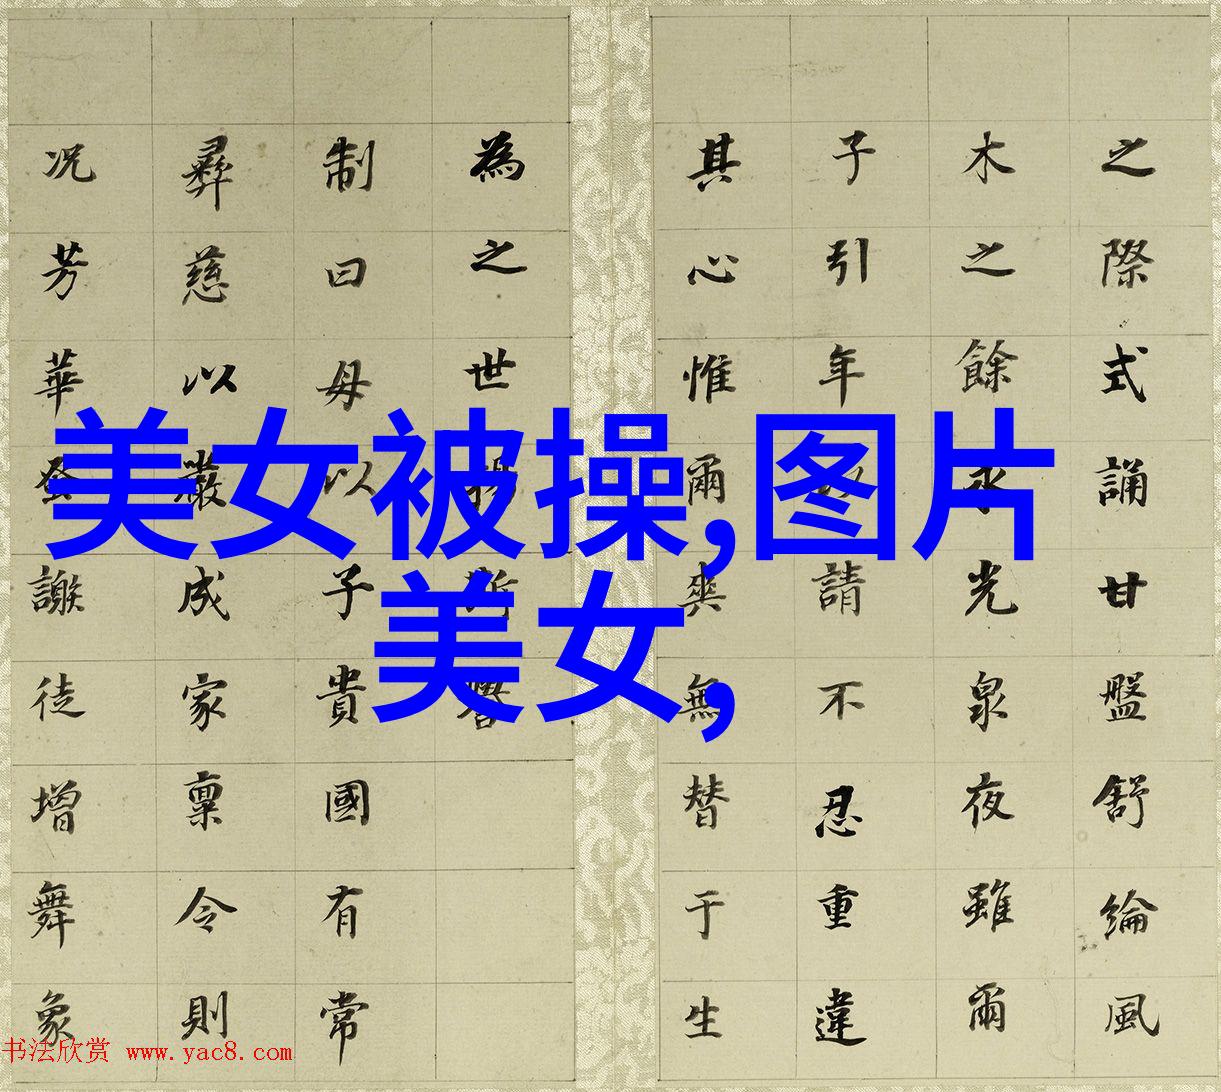 之際式誦甘盤舒綸風
木之餘永光泉夜雖爾
子引年請不忍重違
其心惟爾爽無替于生
為之世
制曰母以子貴國有常
彝慈以嚴成家稟令則
况芳華蚤謝徒增舞象
美女被操,图片
美女,
书法欣赏 www.yac8.com